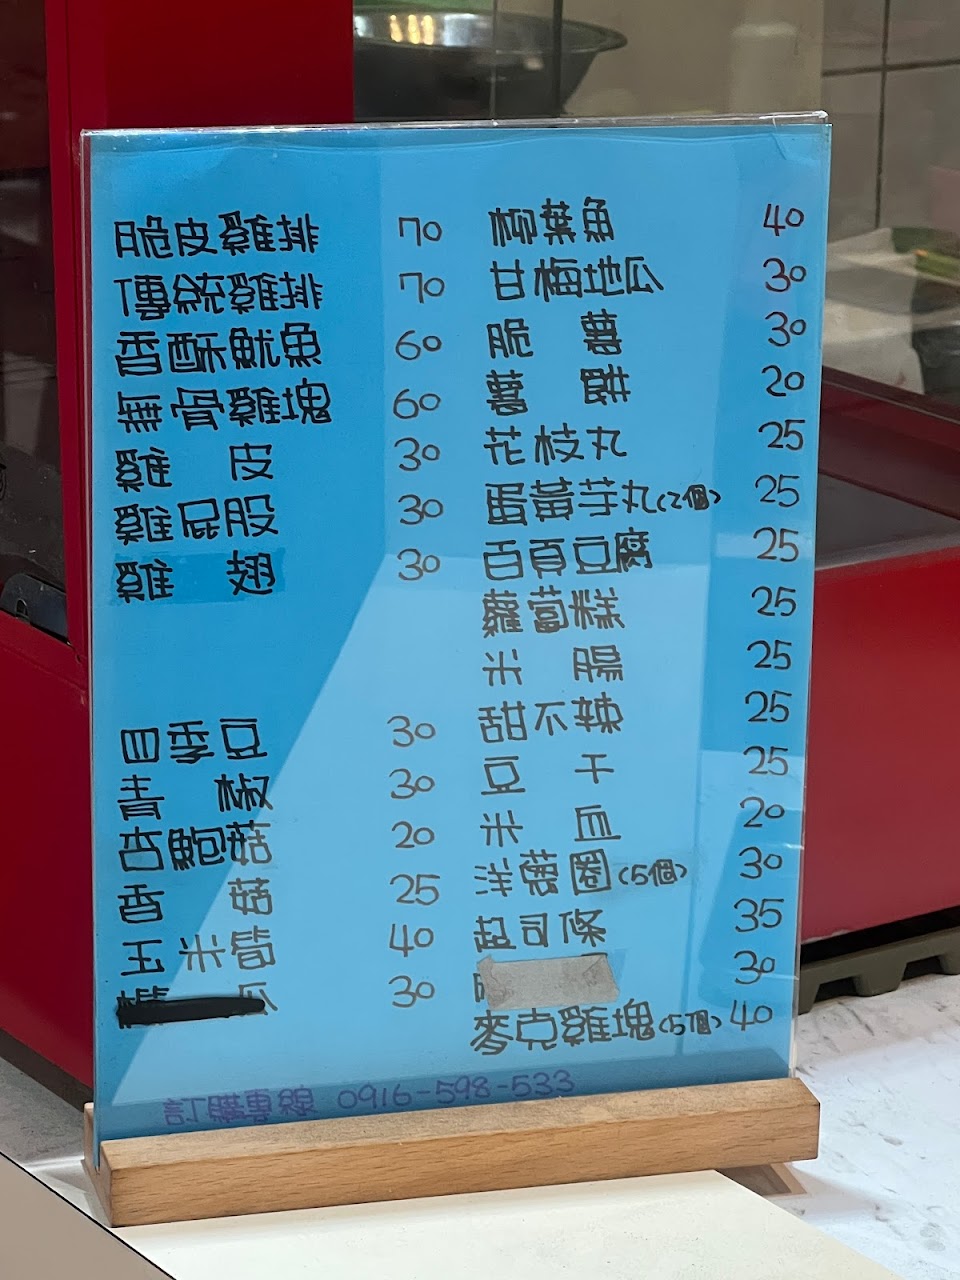 脆皮雞排 70
傳統雞排 70
香酥魷魚 60
無骨雞塊 60
雞皮 30
雞屁股 30
雞翅 30
四季豆 30
青椒 30
杏鮑菇 20
香菇 25
玉米筍 40
瓜 30
柳葉魚 40
甘梅地瓜 30
脆薯 30
薯餅 20
花枝丸 25
蛋黃芋丸(2個) 25
百頁豆腐 25
蘿蔔糕 25
米腸 25
甜不辣 25
豆干 25
米血 20
洋蔥圈(5個) 30
起司條 35
30
麥克雞塊(5個) 40
訂購專線 0916-598-533